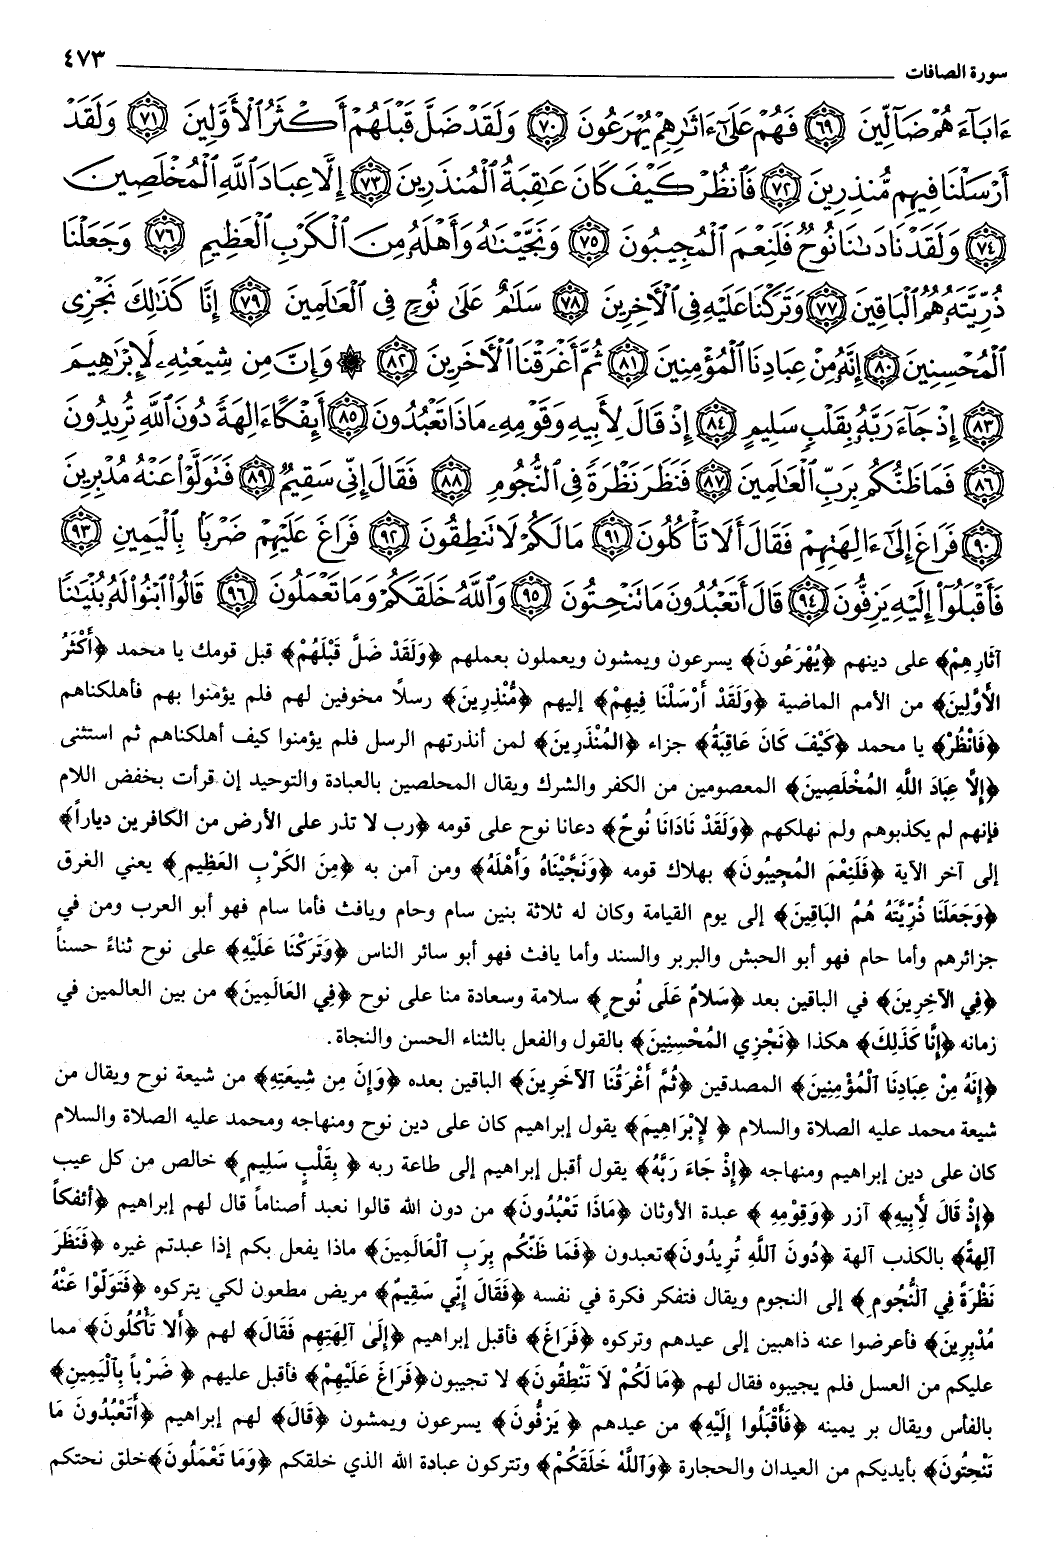 سورة الصافات ٤٧٣
ءَابَآءَهُمْ ضَآلِّينَ ٦٩ فَهُمْ عَلَىٰٓ ءَاثَٰرِهِمْ يُهْرَعُونَ ٧٠ وَلَقَدْ ضَلَّ قَبْلَهُمْ أَكْثَرُ ٱلْأَوَّلِينَ ٧١ وَلَقَدْ
أَرْسَلْنَا فِيهِم مُّنذِرِينَ ٧٢ فَٱنظُرْ كَيْفَ كَانَ عَٰقِبَةُ ٱلْمُنذَرِينَ ٧٣ إِلَّا عِبَادَ ٱللَّهِ ٱلْمُخْلَصِينَ
٧٤ وَلَقَدْ نَادَىٰنَا نُوحٌ فَلَنِعْمَ ٱلْمُجِيبُونَ ٧٥ وَنَجَّيْنَٰهُ وَأَهْلَهُۥ مِنَ ٱلْكَرْبِ ٱلْعَظِيمِ ٧٦ وَجَعَلْنَا
ذُرِّيَّتَهُۥ هُمُ ٱلْبَاقِينَ ٧٧ وَتَرَكْنَا عَلَيْهِ فِى ٱلْءَاخِرِينَ ٧٨ سَلَٰمٌ عَلَىٰ نُوحٍ فِى ٱلْعَٰلَمِينَ ٧٩ إِنَّا كَذَٰلِكَ نَجْزِى
ٱلْمُحْسِنِينَ ٨٠ إِنَّهُۥ مِنْ عِبَادِنَا ٱلْمُؤْمِنِينَ ٨١ ثُمَّ أَغْرَقْنَا ٱلْءَاخَرِينَ ٨٢ ۞ وَإِنَّ مِن شِيعَتِهِۦ لَإِبْرَٰهِيمَ
٨٣ إِذْ جَآءَ رَبَّهُۥ بِقَلْبٍ سَلِيمٍ ٨٤ إِذْ قَالَ لِأَبِيهِ وَقَوْمِهِۦ مَاذَا تَعْبُدُونَ ٨٥ أَئِفْكًا ءَالِهَةً دُونَ ٱللَّهِ تُرِيدُونَ
٨٦ فَمَا ظَنُّكُم بِرَبِّ ٱلْعَٰلَمِينَ ٨٧ فَنَظَرَ نَظْرَةً فِى ٱلنُّجُومِ ٨٨ فَقَالَ إِنِّى سَقِيمٌ ٨٩ فَتَوَلَّوْا۟ عَنْهُ مُدْبِرِينَ
٩٠ فَرَاغَ إِلَىٰٓ ءَالِهَتِهِمْ فَقَالَ أَلَا تَأْكُلُونَ ٩١ مَا لَكُمْ لَا تَنطِقُونَ ٩٢ فَرَاغَ عَلَيْهِمْ ضَرْبًۢا بِٱلْيَمِينِ ٩٣
فَأَقْبَلُوٓا۟ إِلَيْهِ يَزِفُّونَ ٩٤ قَالَ أَتَعْبُدُونَ مَا تَنْحِتُونَ ٩٥ وَٱللَّهُ خَلَقَكُمْ وَمَا تَعْمَلُونَ ٩٦ قَالُوا۟ ٱبْنُوا۟ لَهُۥ بُنْيَٰنًا
آثَارِهِمْ﴾ على دينهم ﴿يُهْرَعُونَ﴾ يسرعون ويمشون ويعملون بعملهم ﴿وَلَقَدْ ضَلَّ قَبْلَهُمْ﴾ قبل قومك يا محمد ﴿أَكْثَرُ
الأَوَّلِينَ﴾ من الأمم الماضية ﴿وَلَقَدْ أَرْسَلْنَا فِيهِمْ﴾ إليهم ﴿مُنْذِرِينَ﴾ رسلاً مخوفين لهم فلم يؤمنوا بهم فأهلكناهم
﴿فَانْظُرْ﴾ يا محمد ﴿كَيْفَ كَانَ عَاقِبَةُ﴾ جزاء ﴿المُنْذَرِينَ﴾ لمن أنذرتهم الرسل فلم يؤمنوا كيف أهلكناهم ثم استثنى
﴿إِلَّا عِبَادَ اللَّهِ المُخْلَصِينَ﴾ المعصومين من الكفر والشرك ويقال المخلصين بالعبادة والتوحيد إن قرأت بخفض اللام
فإنهم لم يكذبوهم ولم نهلكهم ﴿وَلَقَدْ نَادَانَا نُوحٌ﴾ دعانا نوح على قومه ﴿رب لا تذر على الأرض من الكافرين دياراً﴾
إلى آخر الآية ﴿فَلَنِعْمَ المُجِيبُونَ﴾ بهلاك قومه ﴿وَنَجَّيْنَاهُ وَأَهْلَهُ﴾ ومن آمن به ﴿مِنَ الكَرْبِ العَظِيمِ﴾ يعني الغرق
﴿وَجَعَلْنَا ذُرِّيَّتَهُ هُمُ البَاقِينَ﴾ إلى يوم القيامة وكان له ثلاثة بنين سام وحام ويافث فأما سام فهو أبو العرب ومن في
جزائرهم وأما حام فهو أبو الحبش والبربر والسند وأما يافث فهو أبو سائر الناس ﴿وَتَرَكْنَا عَلَيْهِ﴾ على نوح ثناءً حسناً
﴿فِي الآخِرِينَ﴾ في الباقين بعد ﴿سَلامٌ عَلَى نُوحٍ﴾ سلامة وسعادة منا على نوح ﴿فِي العَالَمِينَ﴾ من بين العالمين في
زمانه ﴿إِنَّا كَذَلِكَ﴾ هكذا ﴿نَجْزِي المُحْسِنِينَ﴾ بالقول والفعل بالثناء الحسن والنجاة.
﴿إِنَّهُ مِنْ عِبَادِنَا ٱلْمُؤْمِنِينَ﴾ المصدقين ﴿ثُمَّ أَغْرَقْنَا الآخَرِينَ﴾ الباقين بعده ﴿وَإِنَّ مِن شِيعَتِهِ﴾ من شيعة نوح ويقال من
شيعة محمد عليه الصلاة والسلام ﴿لإِبْرَاهِيمَ﴾ يقول إبراهيم كان على دين نوح ومنهاجه ومحمد عليه الصلاة والسلام
كان على دين إبراهيم ومنهاجه ﴿إِذْ جَاءَ رَبَّهُ﴾ يقول أقبل إبراهيم إلى طاعة ربه ﴿بِقَلْبٍ سَلِيمٍ﴾ خالص من كل عيب
﴿إِذْ قَالَ لِأَبِيهِ﴾ آزر ﴿وَقَوْمِهِ﴾ عبدة الأوثان ﴿مَاذَا تَعْبُدُونَ﴾ من دون الله قالوا نعبد أصناماً قال لهم إبراهيم ﴿أَئفكاً
آلِهةً﴾ بالكذب آلهة ﴿دُونَ اللَّهِ تُرِيدُونَ﴾ تعبدون ﴿فَمَا ظَنّكُم بِرَبِ ٱلْعَالَمِينَ﴾ ماذا يفعل بكم إذا عبدتم غيره ﴿فَنَظَرَ
نَظْرَةً فِي ٱلنُّجُومِ﴾ إلى النجوم ويقال فتفكر فكرة في نفسه ﴿فَقَالَ إِنِّي سَقِيمٌ﴾ مريض مطعون لكي يتركوه ﴿فَتَوَلّوْا عَنْهُ
مُدْبِرِينَ﴾ فأعرضوا عنه ذاهبين إلى عيدهم وتركوه ﴿فَرَاغَ﴾ فأقبل إبراهيم ﴿إِلَىٰ آلِهَتِهِم فَقَالَ﴾ لهم ﴿أَلَا تَأْكُلُونَ﴾ مما
عليكم من العسل فلم يجيبوه فقال لهم ﴿مَا لَكُمْ لَا تَنْطِقُونَ﴾ لا تجيبون ﴿فَرَاغَ عَلَيْهِمْ﴾ فأقبل عليهم ﴿ضَرْباً بِٱلْيَمِينِ﴾
بالفأس ويقال بر يمينه ﴿فَأَقْبَلُوا إِلَيْهِ﴾ من عيدهم ﴿يَزِفُّونَ﴾ يسرعون ويمشون ﴿قَالَ﴾ لهم إبراهيم ﴿أَتَعْبُدُونَ مَا
تَنْحِتُونَ﴾ بأيديكم من العيدان والحجارة ﴿وَٱللَّهُ خَلَقَكُمْ﴾ وتتركون عبادة الله الذي خلقكم ﴿وَمَا تَعْمَلُونَ﴾ خلق نحتكم